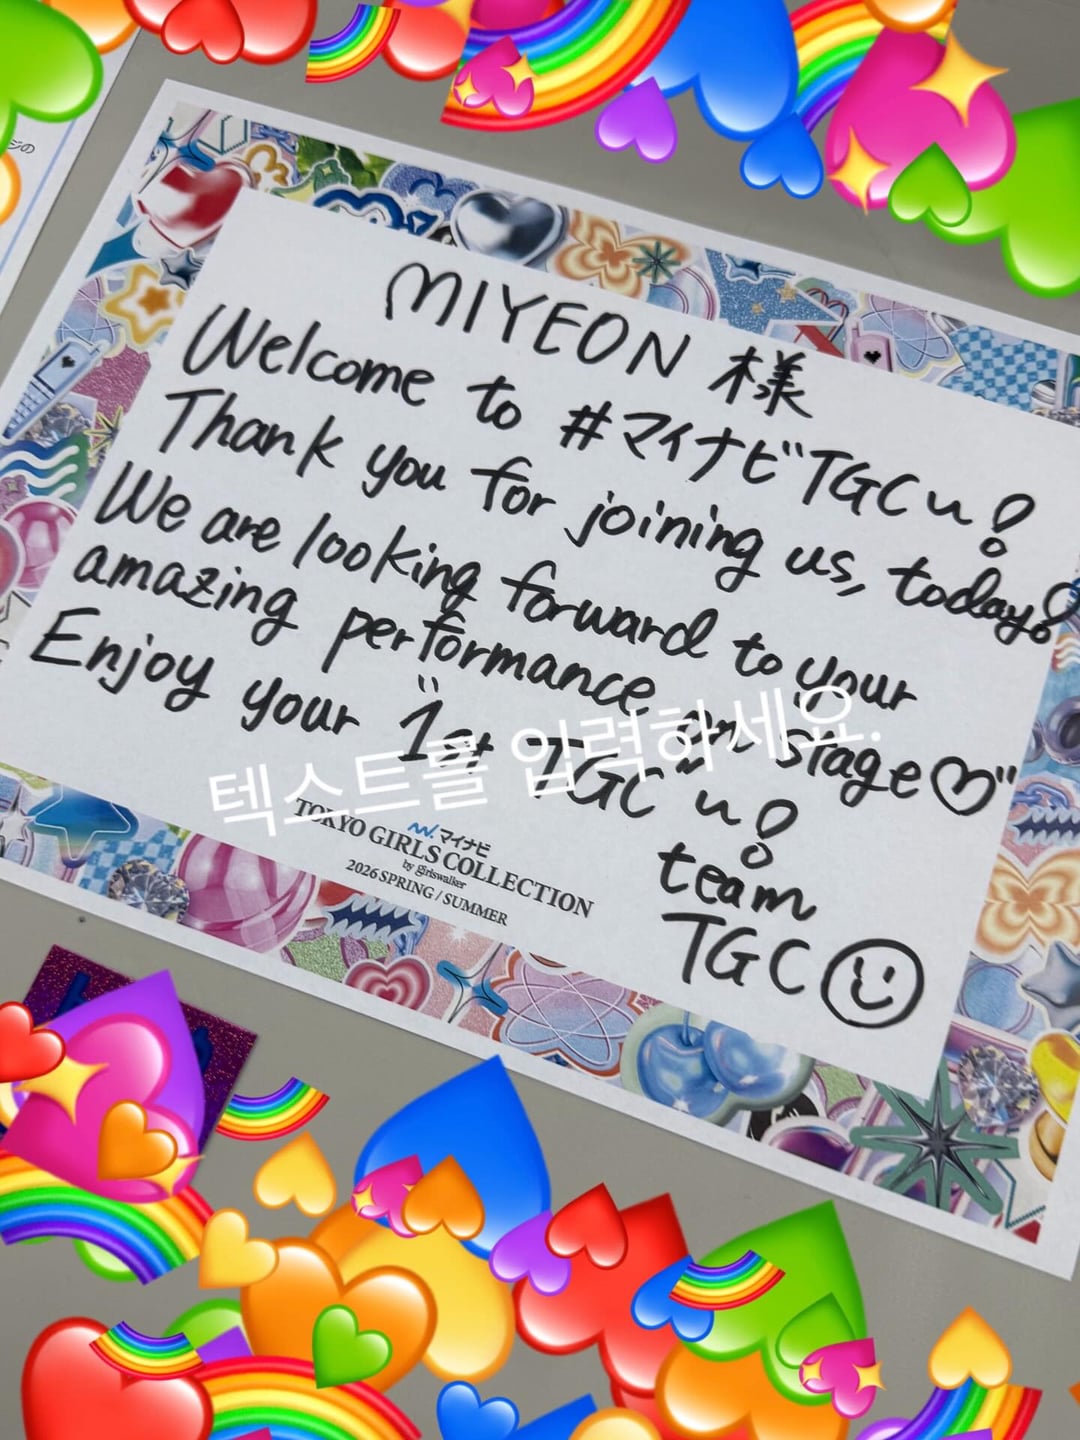 ジの
MIYEON 様
Welcome to #マイナビTGC~!
Thank you for joining us, today!
We are looking forward to your
amazing performance on stage♡"
Enjoy your "1st TGC" ~!
텍스트를 입력하세요.
team
TGC☺
マイナビ
TOKYO GIRLS COLLECTION
by girlswalker
2026 SPRING / SUMMER